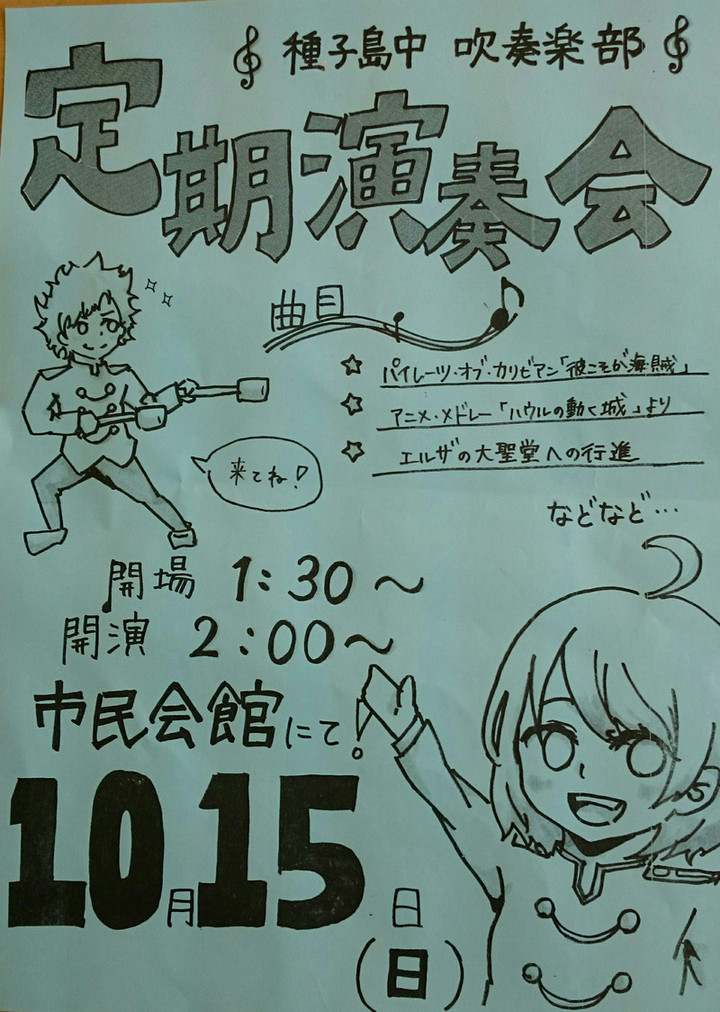 種子島中 吹奏楽部
定期演奏会
曲目
パイレーツ・オブ・カリビアン「彼こそが海賊」
アニメ・メドレー「ハウルの動く城」より
エルザの大聖堂への行進
などなど…
来てね!
開場 1:30～
開演 2:00～
市民会館にて!
10月15日
(日)